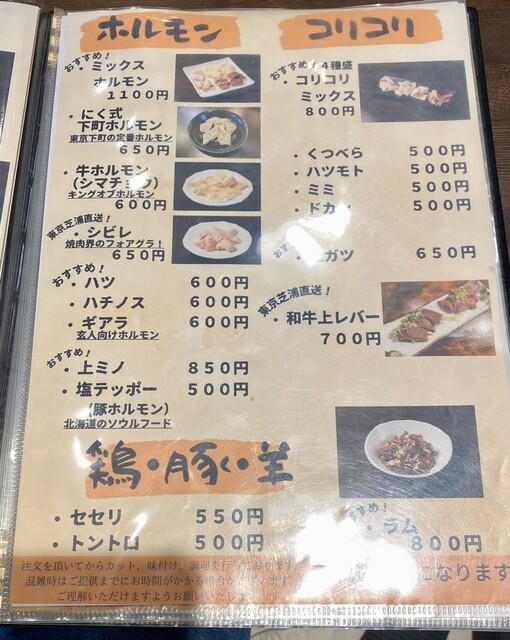 ホルモン
おすすめ！
・ミックス
ホルモン
１１００円
・にく式
下町ホルモン
東京下町の定番ホルモン
６５０円
・牛ホルモン
（シマチョウ）
キングオブホルモン
６００円
東京芝浦直送！
・シビレ
焼肉界のフォアグラ！
６５０円
おすすめ！
・ハツ ６００円
・ハチノス ６００円
・ギアラ ６００円
玄人向けホルモン
おすすめ！
・上ミノ ８５０円
・塩テッポー ５００円
（豚ホルモン）
北海道のソウルフード
コリコリ
おすすめ！４種盛
・コリコリ
ミックス
８００円
・くつべら ５００円
・ハツモト ５００円
・ミミ ５００円
・ドカン ５００円
ガツ ６５０円
東京芝浦直送！
・和牛上レバー
７００円
鶏・豚・羊
・セセリ ５５０円
・トントロ ５００円
おすすめ！
・ラム
８００円
注文を頂いてからカット、味付け、調理を行っております
混雑時はご提供までにお時間がかかる場合がございます
ご理解いただけますようお願いいたします
になります